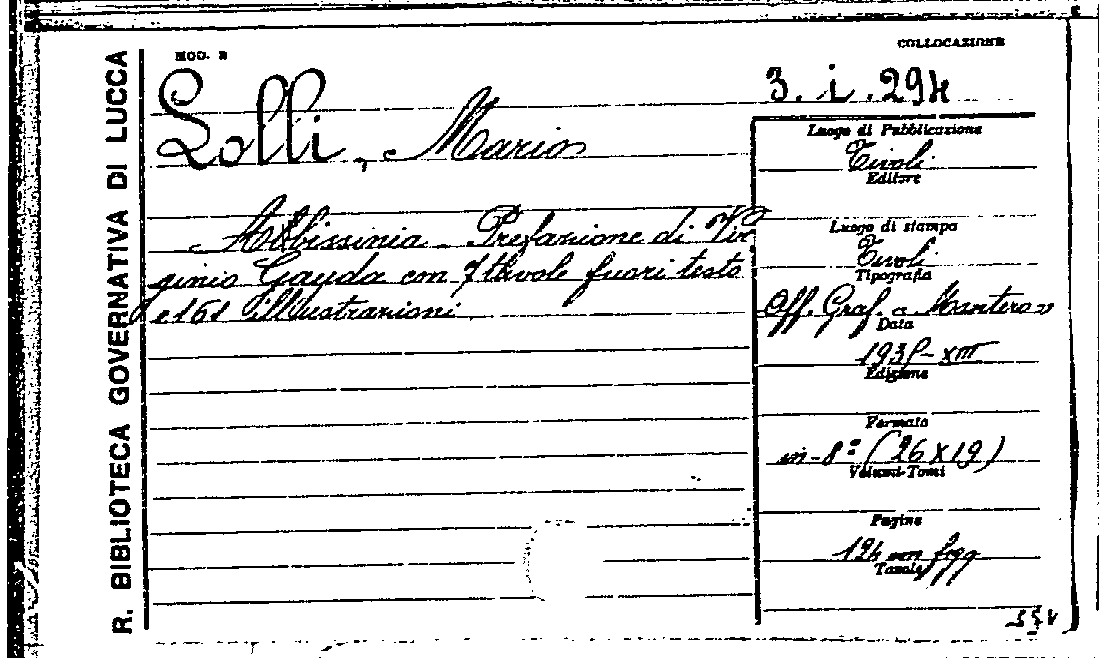 R. BIBLIOTECA GOVERNATIVA DI LUCCA
MOD. B
COLLOCAZIONE
3. i. 294
Lolli, Mario
Abbissinia - Prefazione di Vir
ginio Gayda con 7 tavole fuori testo
e 161 illustrazioni.
Luogo di Pubblicazione
Tivoli
Editore
Luogo di stampa
Tivoli
Tipografia
Off. Graf. Mantero
Data
1935-XIII
Edizione
Formato
in-8º (26x19)
Volumi-Tomi
Pagine
194 con figg
Tavole